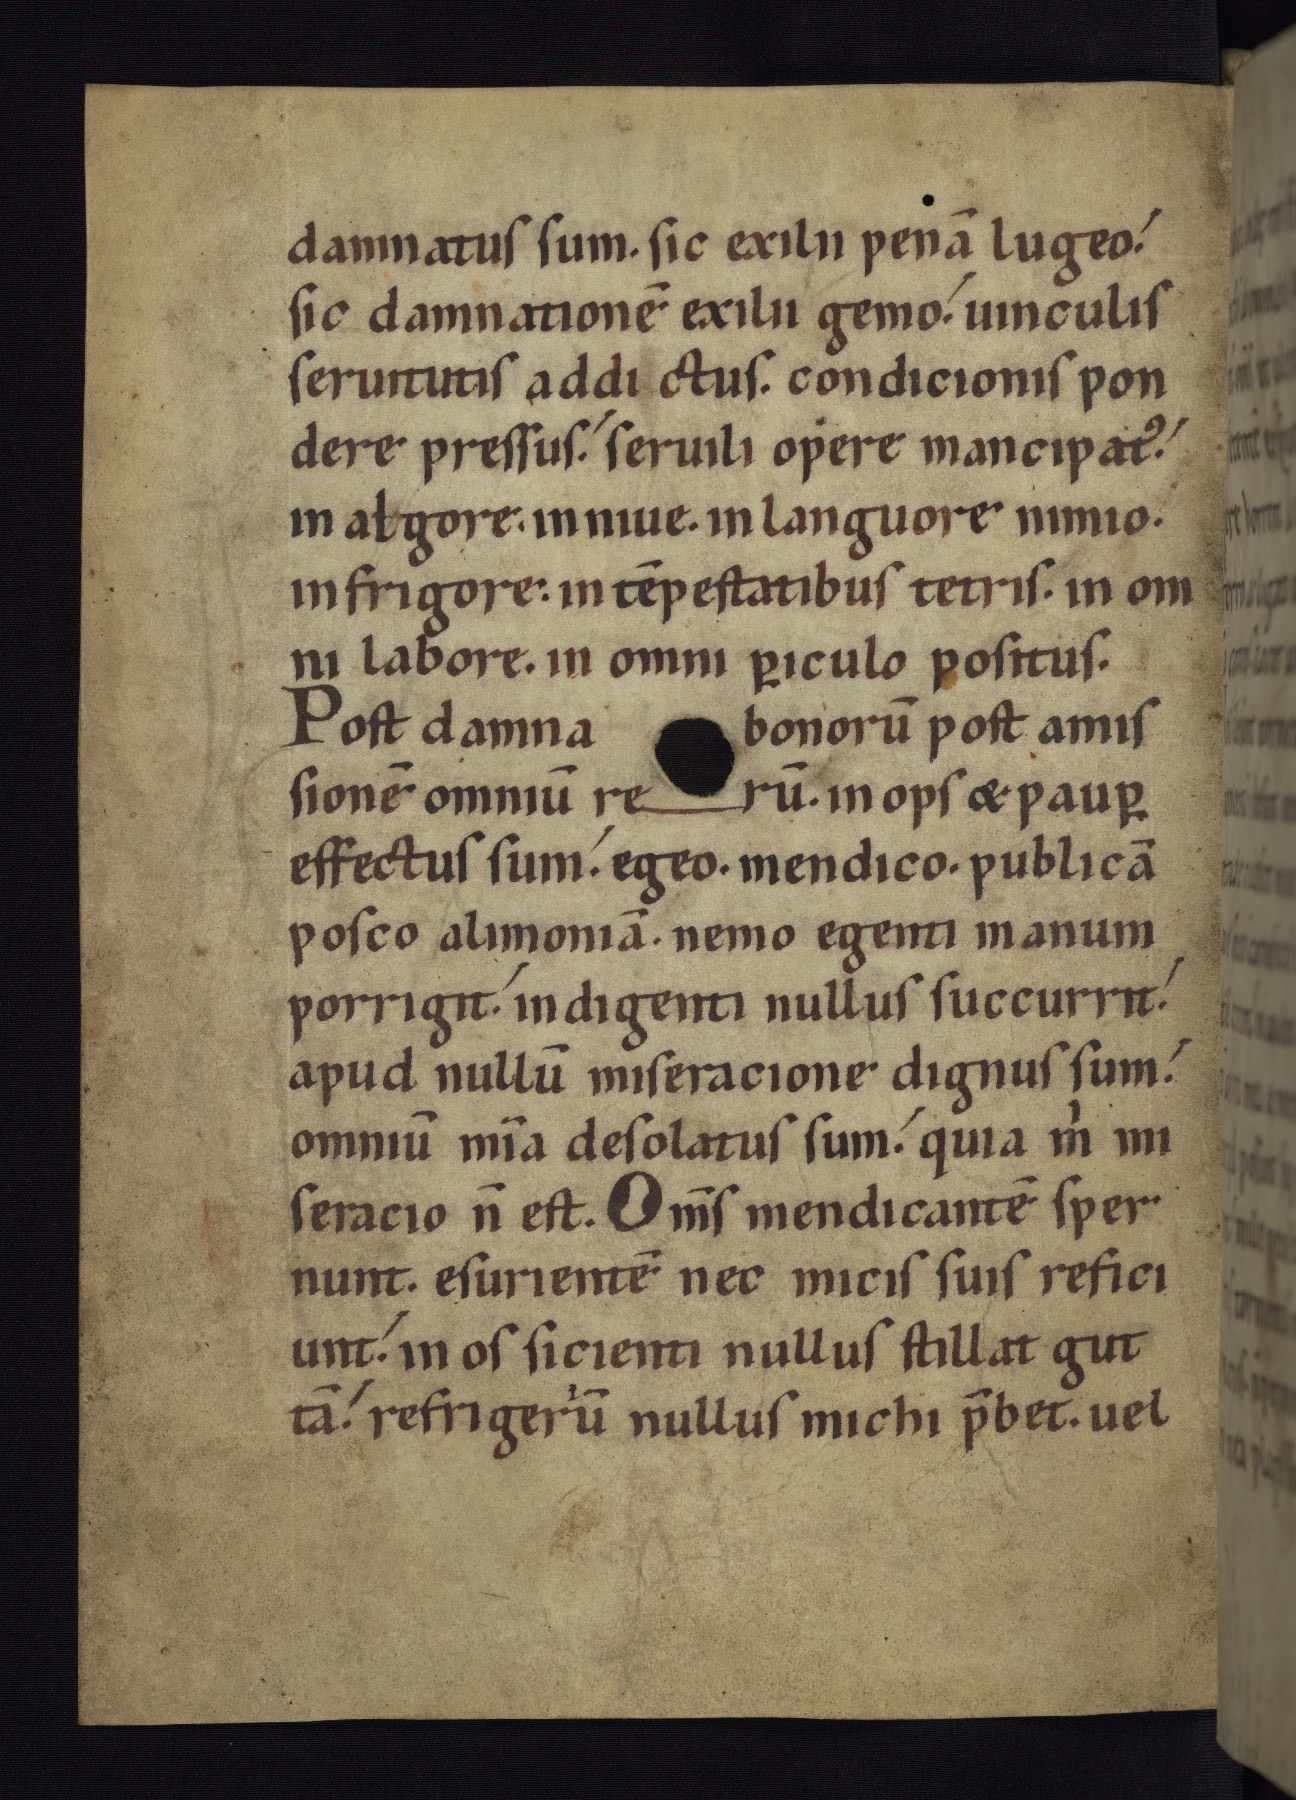 damnatus sum. sic exilii penā lugeo.
sic damnationē exilii gemo. uinculis
seruitutis addictus. condicionis pon
dere pressus. seruili opere mancipatꝰ.
in algore. in niue. in languore nimio.
in frigore. in tēpestatibus tetris. in om
ni labore. in omni ꝑiculo positus.
Post damna bonorū post amis
sionē omniū rerū. inops & pauꝑ
effectus sum. egeo. mendico. publicā
posco alimoniā. nemo egenti manum
porrigit. indigenti nullus succurrit.
apud nullū miseracione dignus sum.
omniū mīa desolatus sum. quia m̍ mi
seracio n̄ est. Om̄s mendicantē sper
nunt. esurientē nec micis suis refici
unt. in os sicienti nullus stillat gut
tā. refrigeriū nullus michi p̄bet. uel